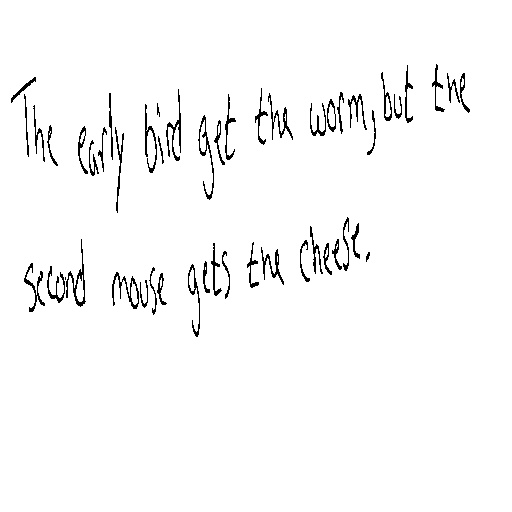 The early bird get the worm, but the
second mouse gets the cheese.